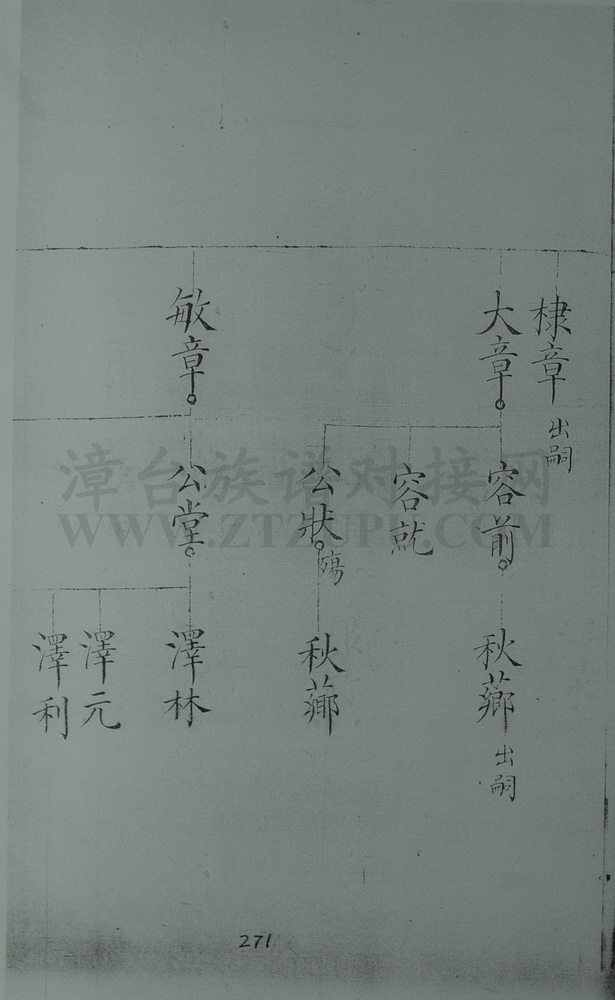 棣章 出嗣
大章
敏章
容前
容就
公狀 殤
公堂
秋薌 出嗣
秋薌
澤林
澤元
澤利
漳台族谱对接网
WWW.ZTZUPU.COM
271